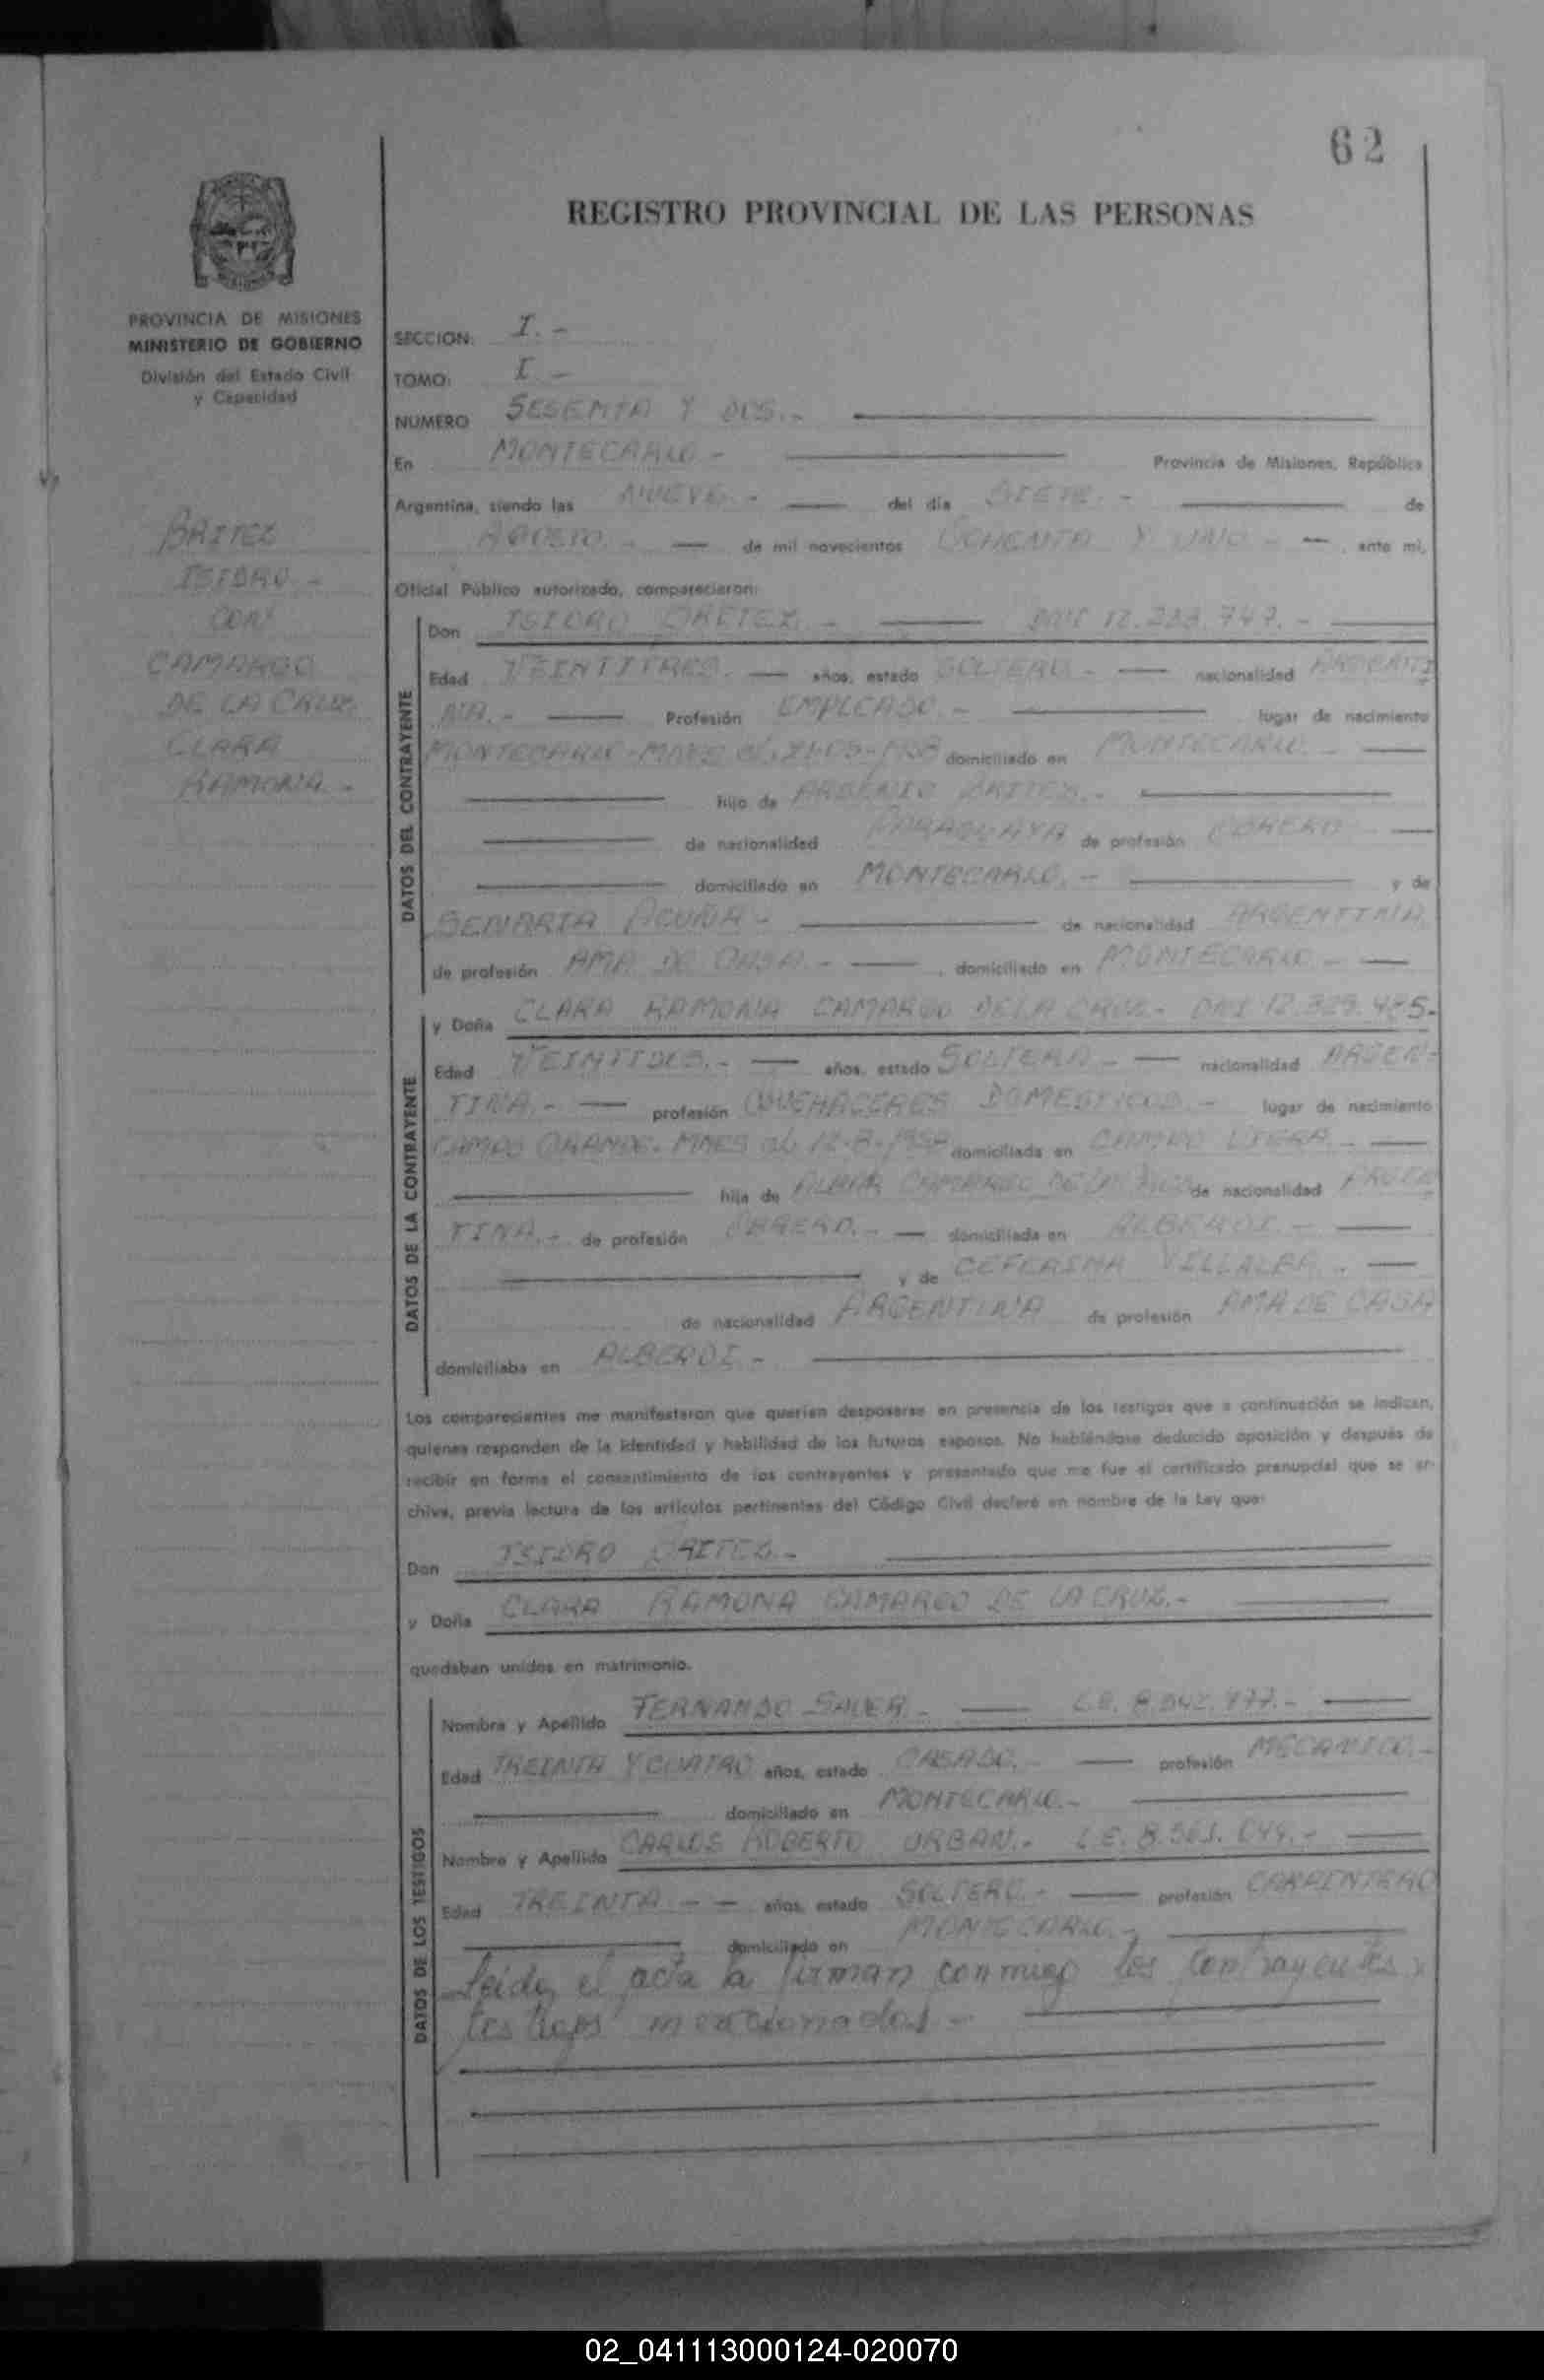 62
REGISTRO PROVINCIAL DE LAS PERSONAS
PROVINCIA DE MISIONES
MINISTERIO DE GOBIERNO
División del Estado Civil
y Capacidad
BRITEZ
ISIDRO -
CON
CAMARGO
DE LA CRUZ
CLARA
RAMONA -
SECCION: I. -
TOMO: I -
NUMERO SESENTA Y DOS. -
En MONTECARLO - Provincia de Misiones, República
Argentina, siendo las NUEVE. - del día SIETE. - de
AGOSTO. - de mil novecientos OCHENTA Y UNO - ante mí,
Oficial Público autorizado, comparecieron:
DATOS DEL CONTRAYENTE
Don ISIDRO BRITEZ. - DNI 12.
Edad VEINTITRES. - años, estado SOLTERO - nacionalidad ARGENTI
NA. - Profesión EMPLEADO. - lugar de nacimiento
MONTECARLO - domiciliado en MONTECARLO. -
hijo de ARSENIO BRITEZ. -
de nacionalidad PARAGUAYA de profesión OBRERO
domiciliado en MONTECARLO. - y de
ACUÑA - de nacionalidad ARGENTINA.
de profesión AMA DE CASA. - , domiciliado en MONTECARLO -
DATOS DE LA CONTRAYENTE
y Doña CLARA RAMONA CAMARGO DE LA CRUZ - DNI 12.
Edad VEINTIDOS. - años, estado SOLTERA - nacionalidad ARGEN-
TINA. - profesión QUEHACERES DOMESTICOS. - lugar de nacimiento
CAMPO GRANDE. domiciliada en
hija de CAMARGO DE LA CRUZ de nacionalidad ARGEN
TINA. - de profesión OBRERO. - domiciliada en ALBERDI. -
y de CEFERINA VILLALBA. -
de nacionalidad ARGENTINA de profesión AMA DE CASA
domiciliaba en ALBERDI -
Los comparecientes me manifestaron que querían desposarse en presencia de los testigos que a continuación se indican,
quienes responden de la identidad y habilidad de los futuros esposos. No habiéndose deducido oposición y después de
recibir en forma el consentimiento de los contrayentes y presentado que me fue el certificado prenupcial que se ar-
chiva, previa lectura de los artículos pertinentes del Código Civil declaré en nombre de la Ley que:
Don ISIDRO BRITEZ. -
y Doña CLARA RAMONA CAMARGO DE LA CRUZ. -
quedaban unidos en matrimonio.
DATOS DE LOS TESTIGOS
Nombre y Apellido FERNANDO SAUER. -
Edad TREINTA Y CUATRO años, estado CASADO. - profesión MECANICO. -
domiciliado en MONTECARLO. -
Nombre y Apellido CARLOS ROBERTO URBAN. - L.E. 8.
Edad TREINTA - - años, estado SOLTERO. - profesión CARPINTERO
domiciliado en MONTECARLO. -
Leída el acta la firman conmigo los contrayentes y
testigos mencionados. -
02_041113000124-020070